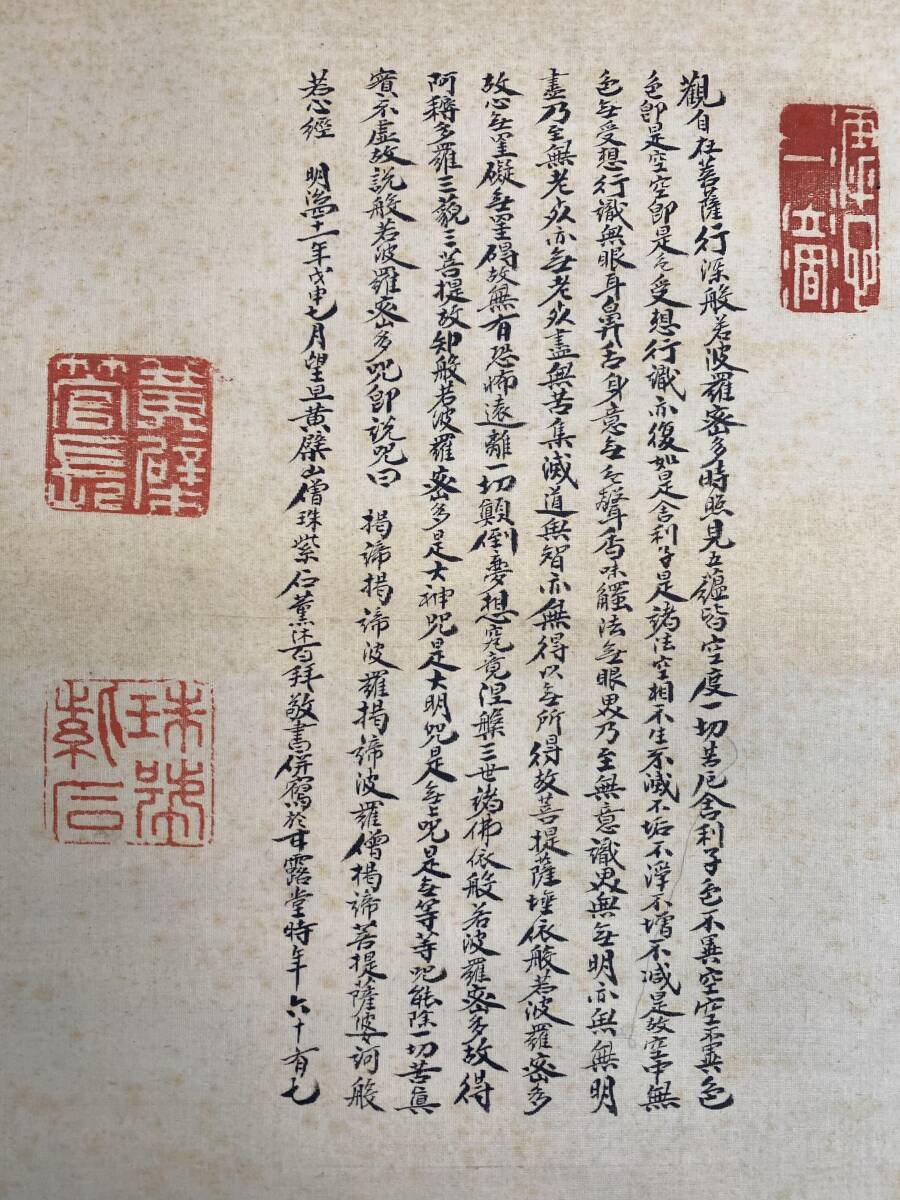 觀自在菩薩行深般若波羅密多時照見五蘊皆空度一切苦厄舍利子色不異空空不異色
色即是空空即是色受想行識亦復如是舍利子是諸法空相不生不滅不垢不淨不增不減是故空中無
色無受想行識無眼耳鼻舌身意無色聲香味觸法無眼界乃至無意識界無無明亦無無明
盡乃至無老死亦無老死盡無苦集滅道無智亦無得以無所得故菩提薩埵依般若波羅密多
故心無罣礙無罣碍故無有恐怖遠離一切顛倒夢想究竟涅槃三世諸佛依般若波羅密多故得
阿耨多羅三藐三菩提故知般若波羅密多是大神咒是大明咒是無上咒是無等等咒能除一切苦眞
實不虛故說般若波羅密多咒即說咒曰 揭諦揭諦波羅揭諦波羅僧揭諦菩提薩婆訶般
若心經 明治四十一年戊申七月望旦黄檗山僧珠紫石薰沐百拜敬書併寫於甘露堂時年六十有七
一滴
黄檗
管長
珠號
紫石